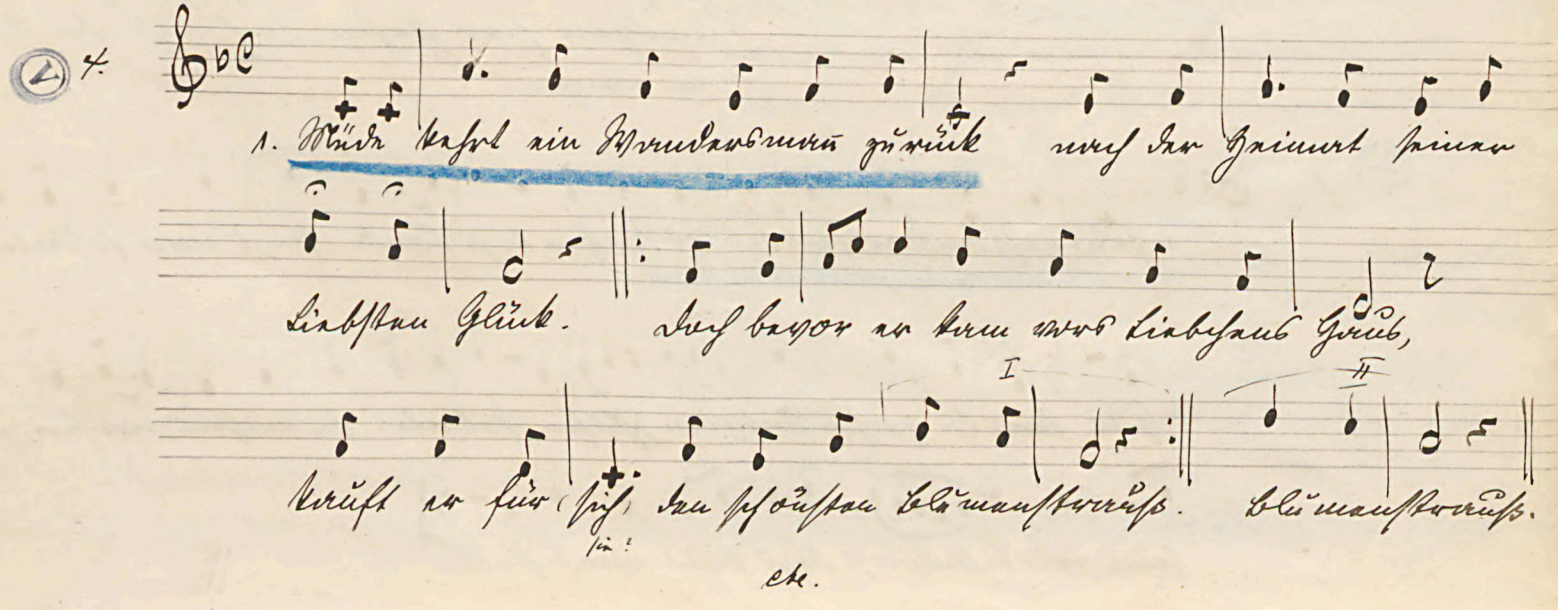 V 4.
1. Müde kehrt ein Wandersmañ zurück nach der Heimat seiner
Liebsten Glück. Doch bevor er kam vors Liebchens Haus,
I II
kauft er für (sich) den schönsten Blumenstrauß. Blumenstrauß.
sie?
etc.